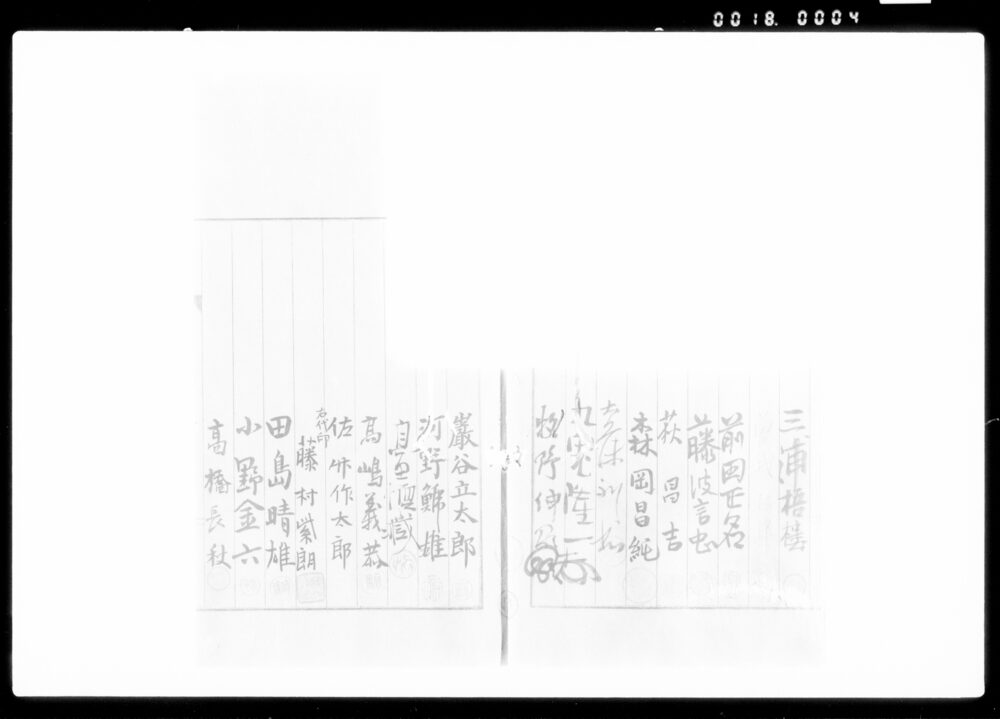 0018.0004
三浦梧楼
前田正名
藤波言忠
萩昌吉
森岡昌純
九鬼隆一
牧野伸顕
巌谷立太郎
河野鯱雄
高嶋義恭
佐竹作太郎
右代印
藤村紫朗
田島晴雄
小野金六
高橋長秋